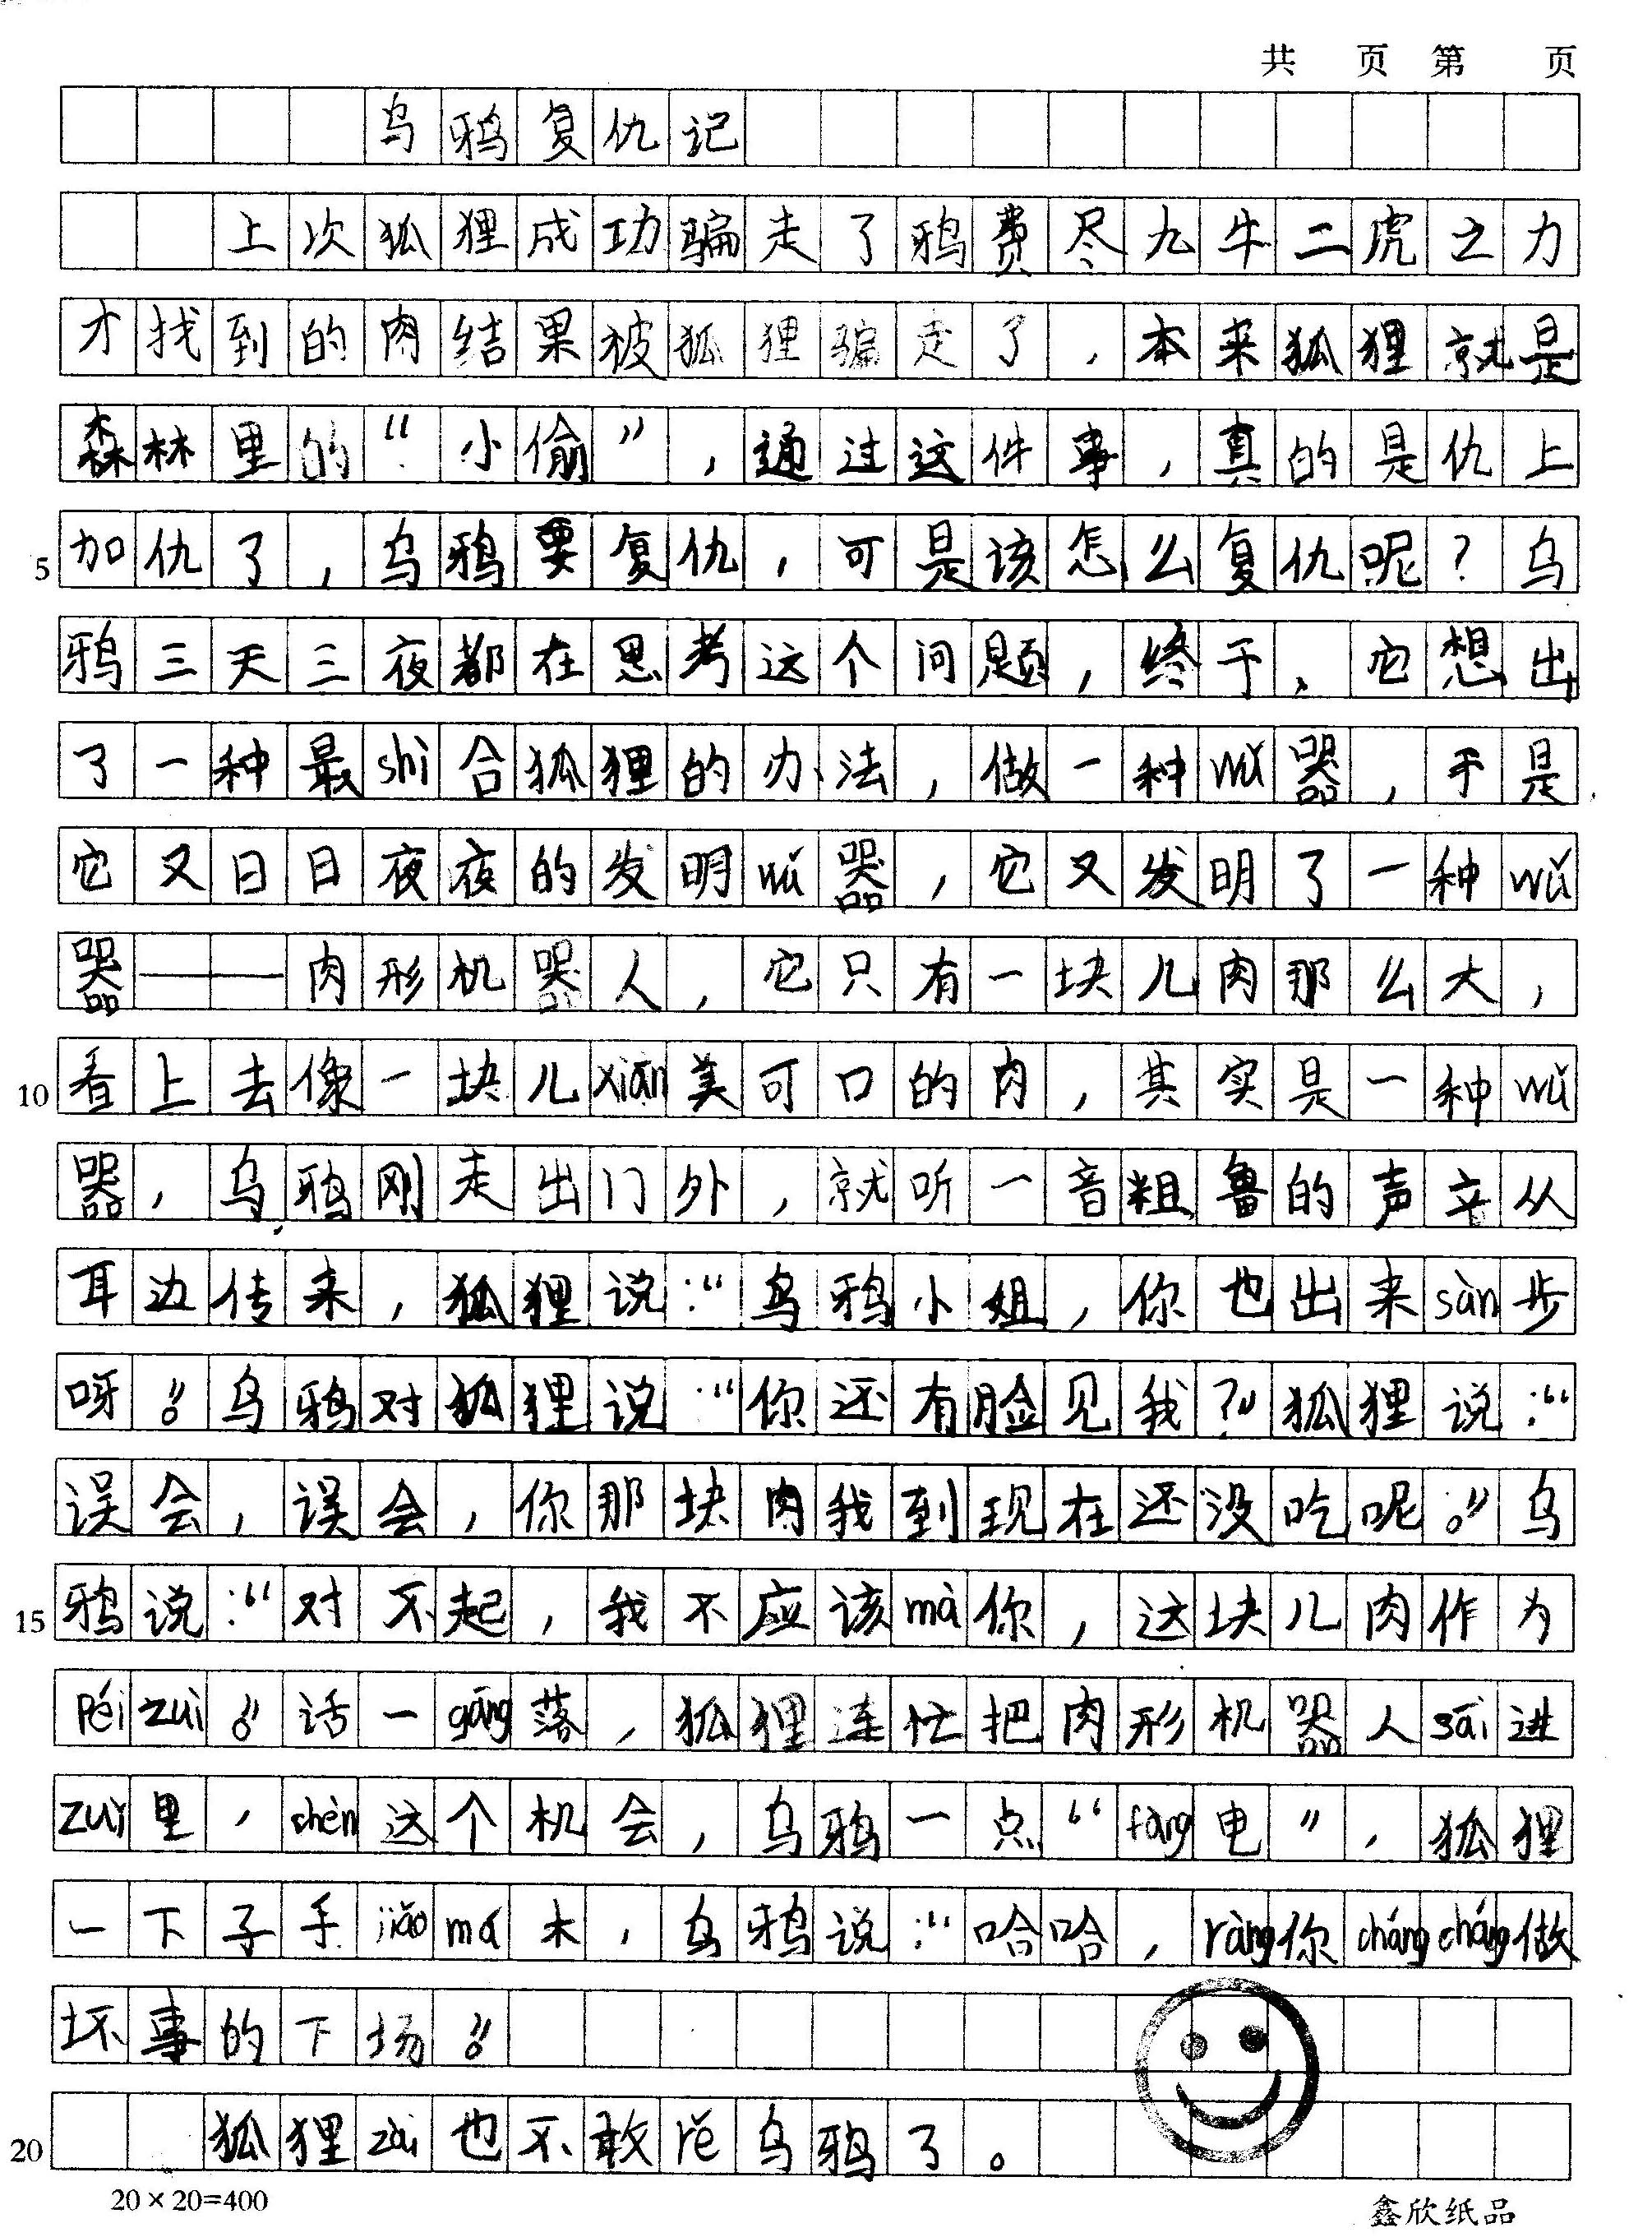 共 页 第 页
乌鸦复仇记
上次狐狸成功骗走了鸦费尽九牛二虎之力
才找到的肉结果被狐狸骗走了，本来狐狸就是
森林里的“小偷”，通过这件事，真的是仇上
加仇了，乌鸦要复仇，可是该怎么复仇呢？乌
5
鸦三天三夜都在思考这个问题，终于，它想出
了一种最shì合狐狸的办法，做一种wǔ器，于是
它又日日夜夜的发明wǔ器，它又发明了一种wǔ
器——肉形机器人，它只有一块儿肉那么大，
看上去像一块儿xiān美可口的肉，其实是一种wǔ
10
器，乌鸦刚走出门外，就听一音粗鲁的声音从
耳边传来，狐狸说：“乌鸦小姐，你也出来sàn步
呀。”乌鸦对狐狸说：“你还有脸见我？”狐狸说：“
误会，误会，你那块肉我到现在还没吃呢。”乌
鸦说：“对不起，我不应该mà你，这块儿肉作为
15
péi zuì。”话一gāng落，狐狸连忙把肉形机器人sāi进
zuǐ里，chèn这个机会，乌鸦一点“fàng电”，狐狸
一下子手jiǎo má木，乌鸦说：“哈哈，ràng你cháng cháng做
坏事的下场。”
狐狸zài也不敢rě乌鸦了。
20
20×20=400
鑫欣纸品